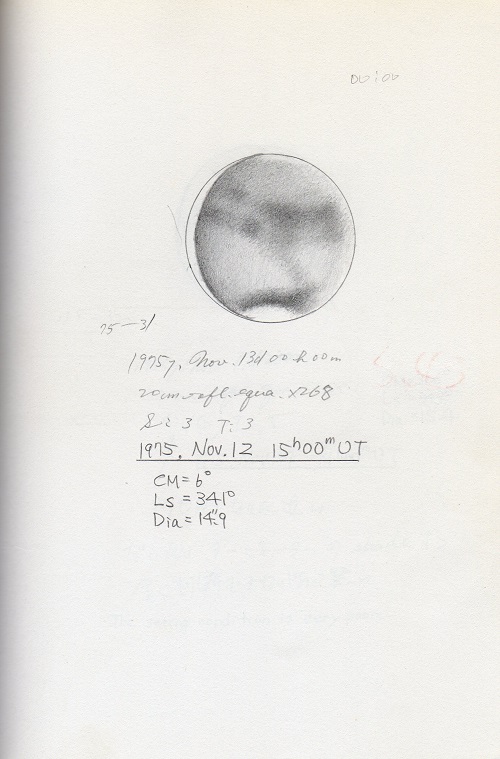 00:00
75-31
1975y, Nov. 13d 00h 00m
20cm refl. equa. ×268
S: 3 T: 3
1975. Nov. 12 15ʰ00ᵐ UT
CM = 6°
Ls = 341°
Dia = 14."9